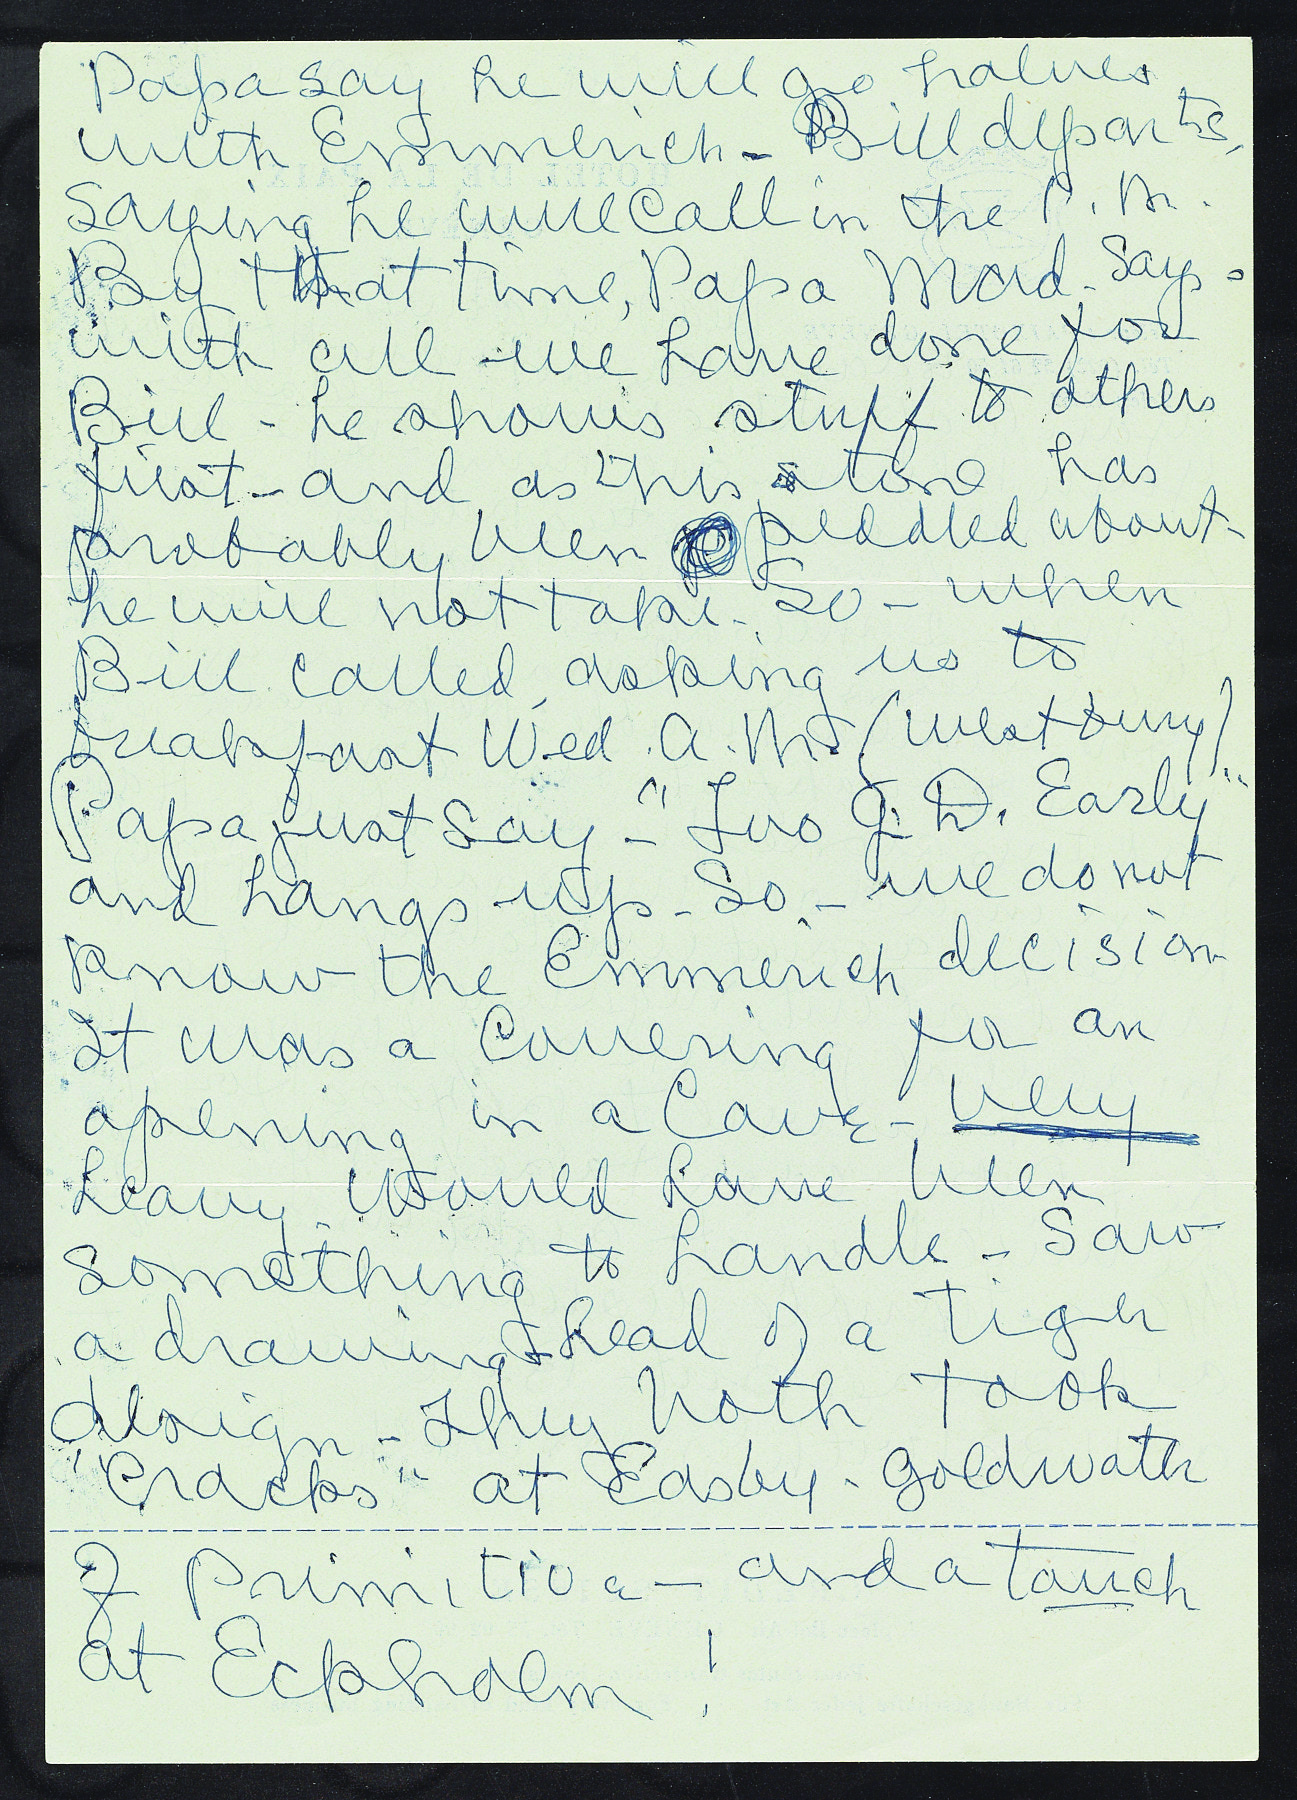 Papa say he will go halves
with Emmerich - Bill departs,
saying he will call in the P.M.
By that time, Papa Mad. Says -
with all we have done for
Bill - he shows stuff to others
first - and as this stone has
probably been peddled about -
he will not take. So - when
Bill called, asking us to
breakfast Wed. A.M. (Westbury)
Papa just say - "Too G.D. Early"
and hangs up - So - we do not
know the Emmerich decision
It was a Covering for an
opening in a Cave - very
heavy. Would have been
something to handle - Saw
a drawing & head of a tiger
design - They both took
"Cracks" at Easby - Goldwater
of Primitive - and a touch
at Eckholm!
HOTEL DE LA PAIX